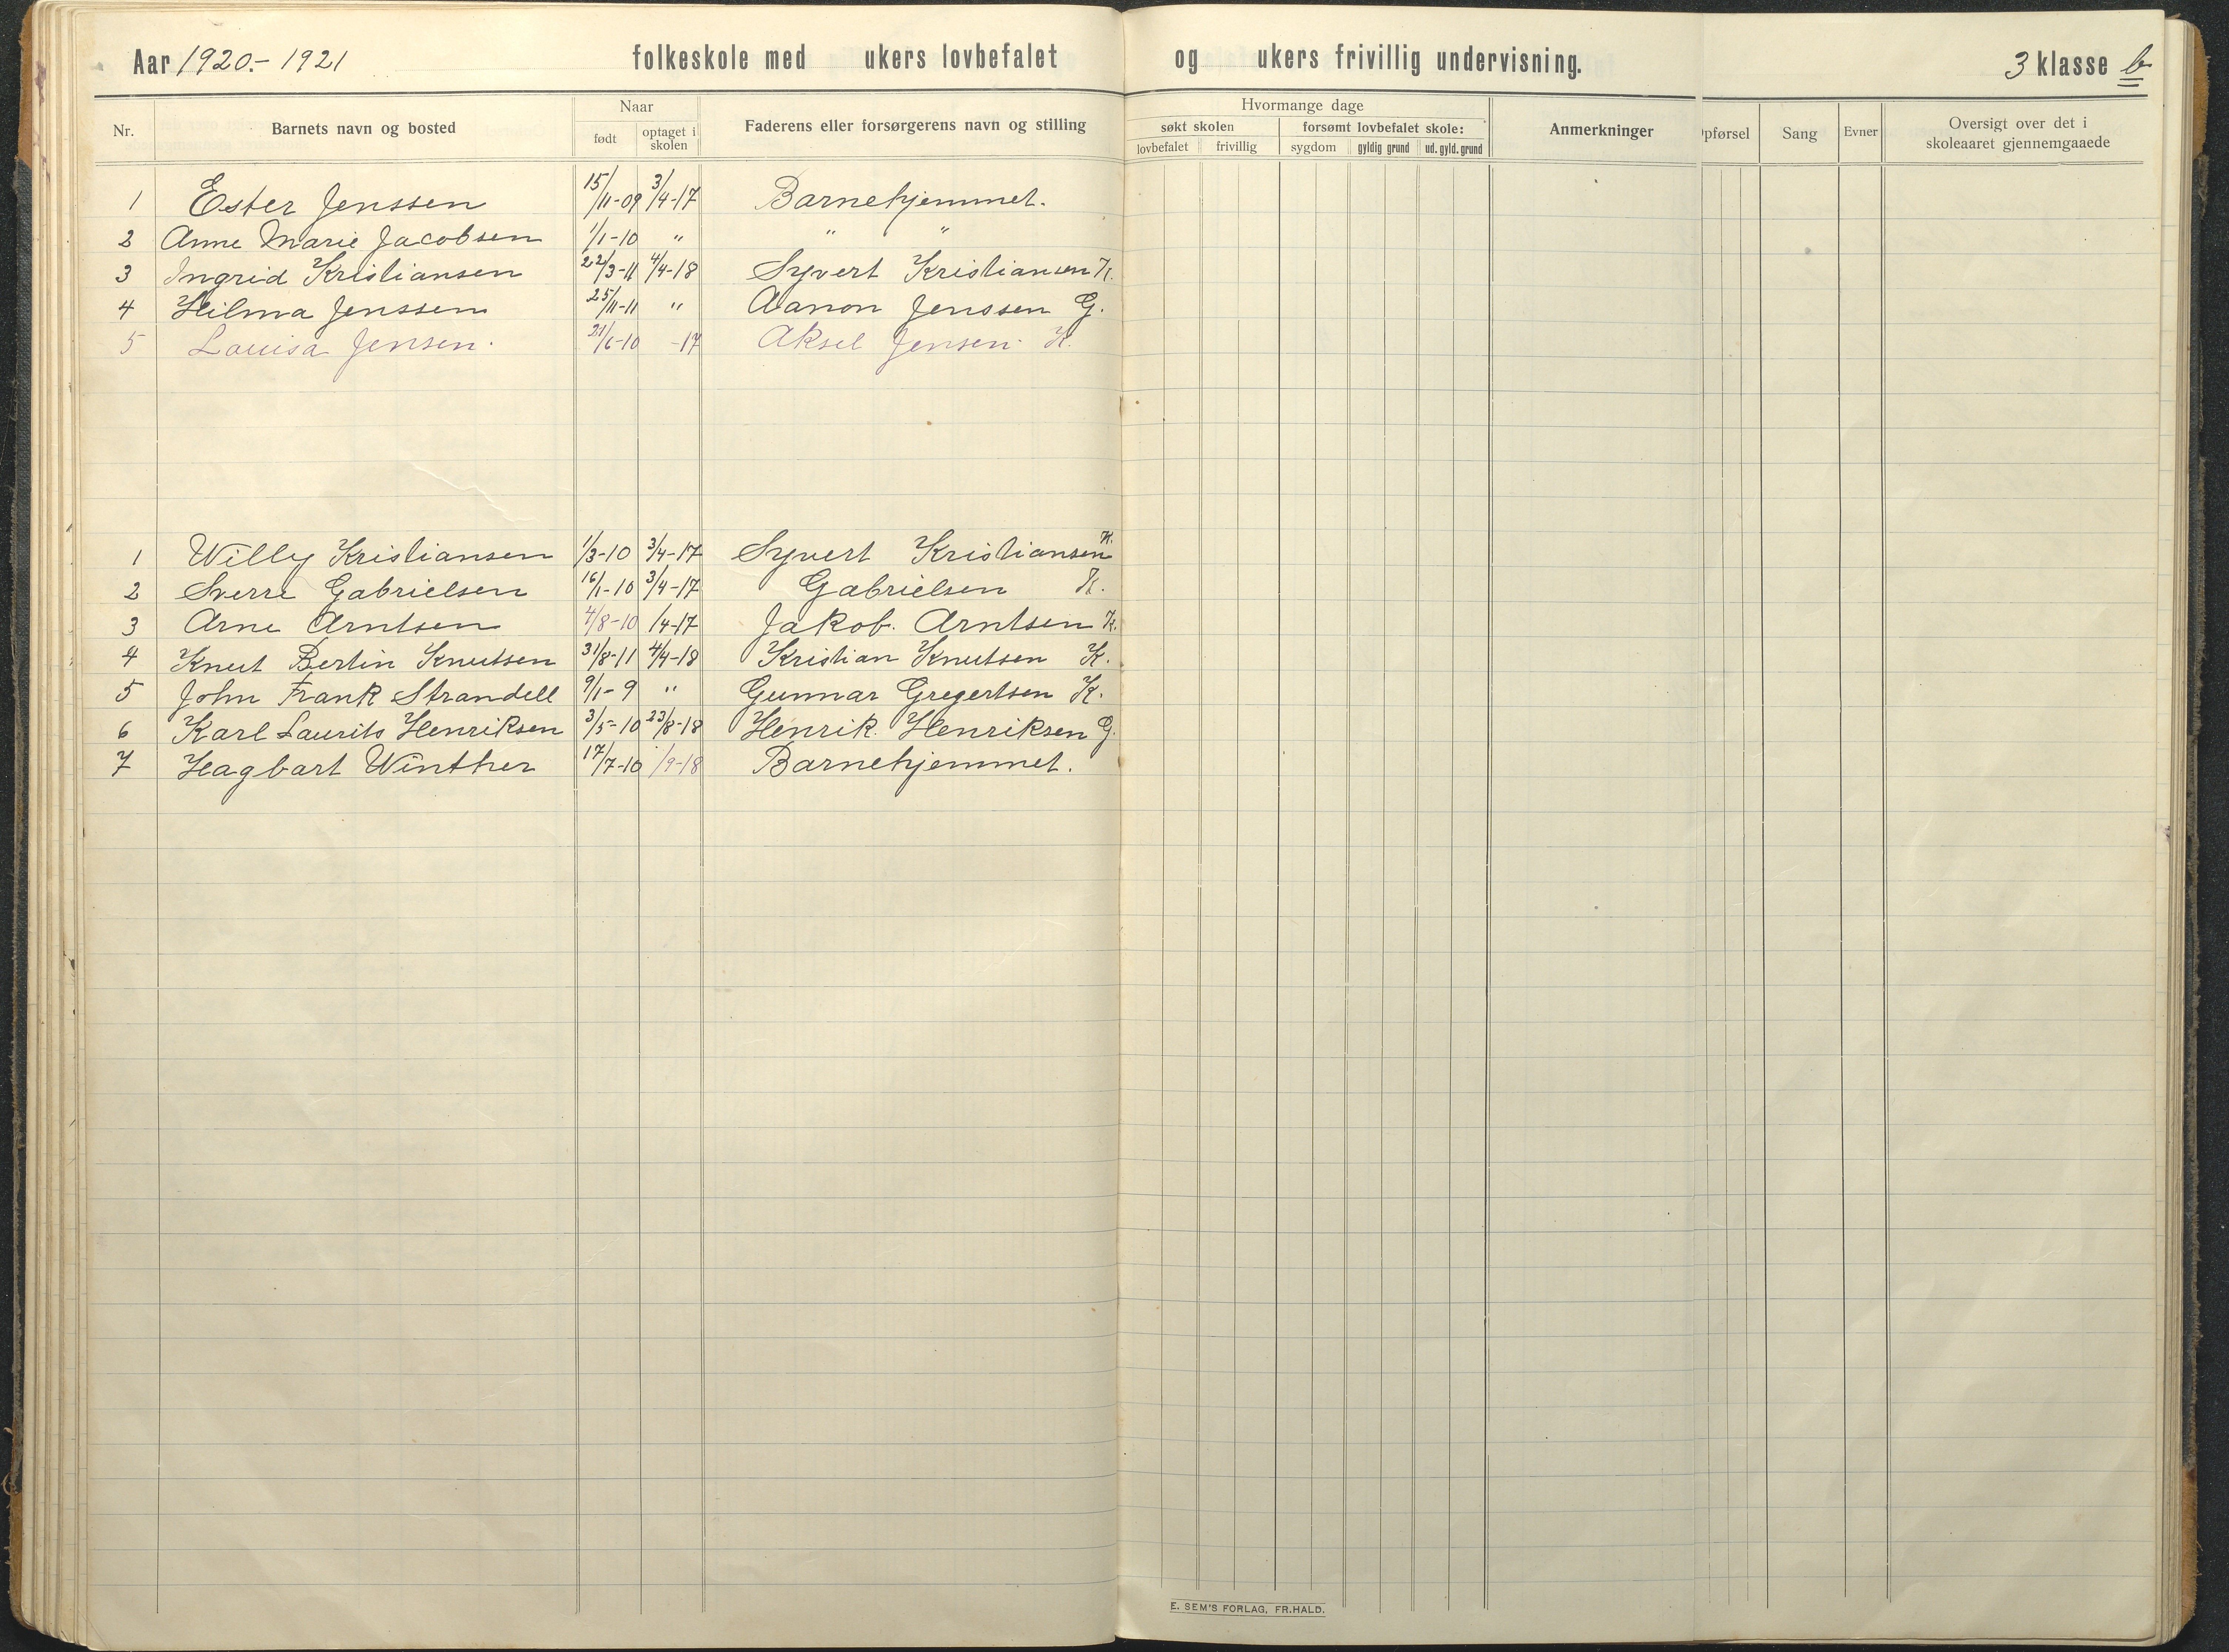 Aar 1920.- 1921 folkeskole med ukers lovbefalet og ukers frivillig undervisning. 3 klasse b
Nr. Barnets navn og bosted Naar født optaget i skolen Faderens eller forsørgerens navn og stilling Hvormange dage søkt skolen lovbefalet frivillig forsømt lovbefalet skole: sygdom gyldig grund ud. gyld. grund Anmerkninger pførsel Sang Evner Oversigt over det i skoleaaret gjennemgaaede
1 Ester Jenssen 15/11-09 3/4-17 Barnehjemmet.
2 Anne Marie Jacobsen 1/1-10 " " "
3 Ingrid Kristiansen 22/3-11 4/4-18 Syvert Kristiansen K.
4 Hilma Jenssen 25/11-11 " Aanon Jenssen G.
5 Louisa Jensen. 21/6-10 -17 Aksel Jensen. K.
1 Willy Kristiansen 1/3-10 3/4-17 Syvert Kristiansen K.
2 Sverre Gabrielsen 16/1-10 3/4-17 Gabrielsen K.
3 Arne Arntsen 4/8-10 /4-17 Jakob. Arntsen K.
4 Knut Bertin Knutsen 31/8-11 4/4-18 Kristian Knutsen K.
5 John Frank Strandell 9/1-9 " Gunnar Gregertsen K.
6 Karl Laurits Henriksen 3/5-10 23/8-18 Henrik. Henriksen G.
7 Hagbart Winther 17/7-10 /9-18 Barnehjemmet.
E. SEM'S FORLAG, FR.HALD.